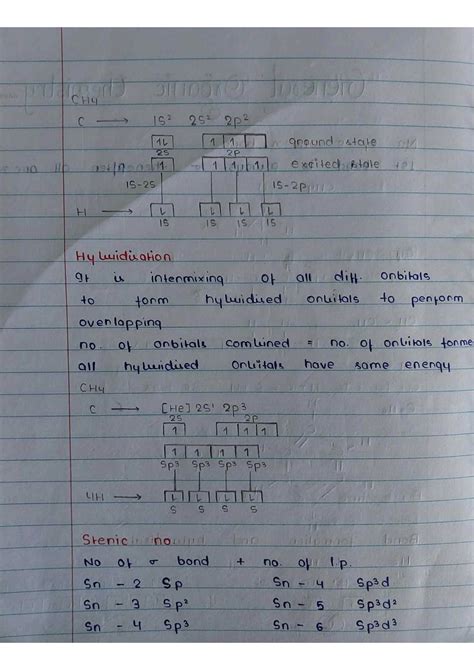 CH4
C → 1S² 2S² 2p²
1L 1 1 ground state
2S 2p
1 1 1 1 excited state
1S-2S 1S-2p
H → L L L L
1S 1S 1S 1S
Hybridisation
It is intermixing of all diff. orbitals
to form hybridised orbitals to perform
overlapping
no. of orbitals combined = no. of orbitals forme
all hybridised orbitals have same energy
CH4
C → [He] 2S¹ 2p³
2S 2p
1 1 1 1
1 1 1 1
Sp³ Sp³ Sp³ Sp³
4H → L L L L
S S S S
Steric no.
No of σ bond + no. of l.p.
Sn - 2 Sp Sn - 4 Sp³d
Sn - 3 Sp² Sn - 5 Sp³d²
Sn - 4 Sp³ Sn - 6 Sp³d³